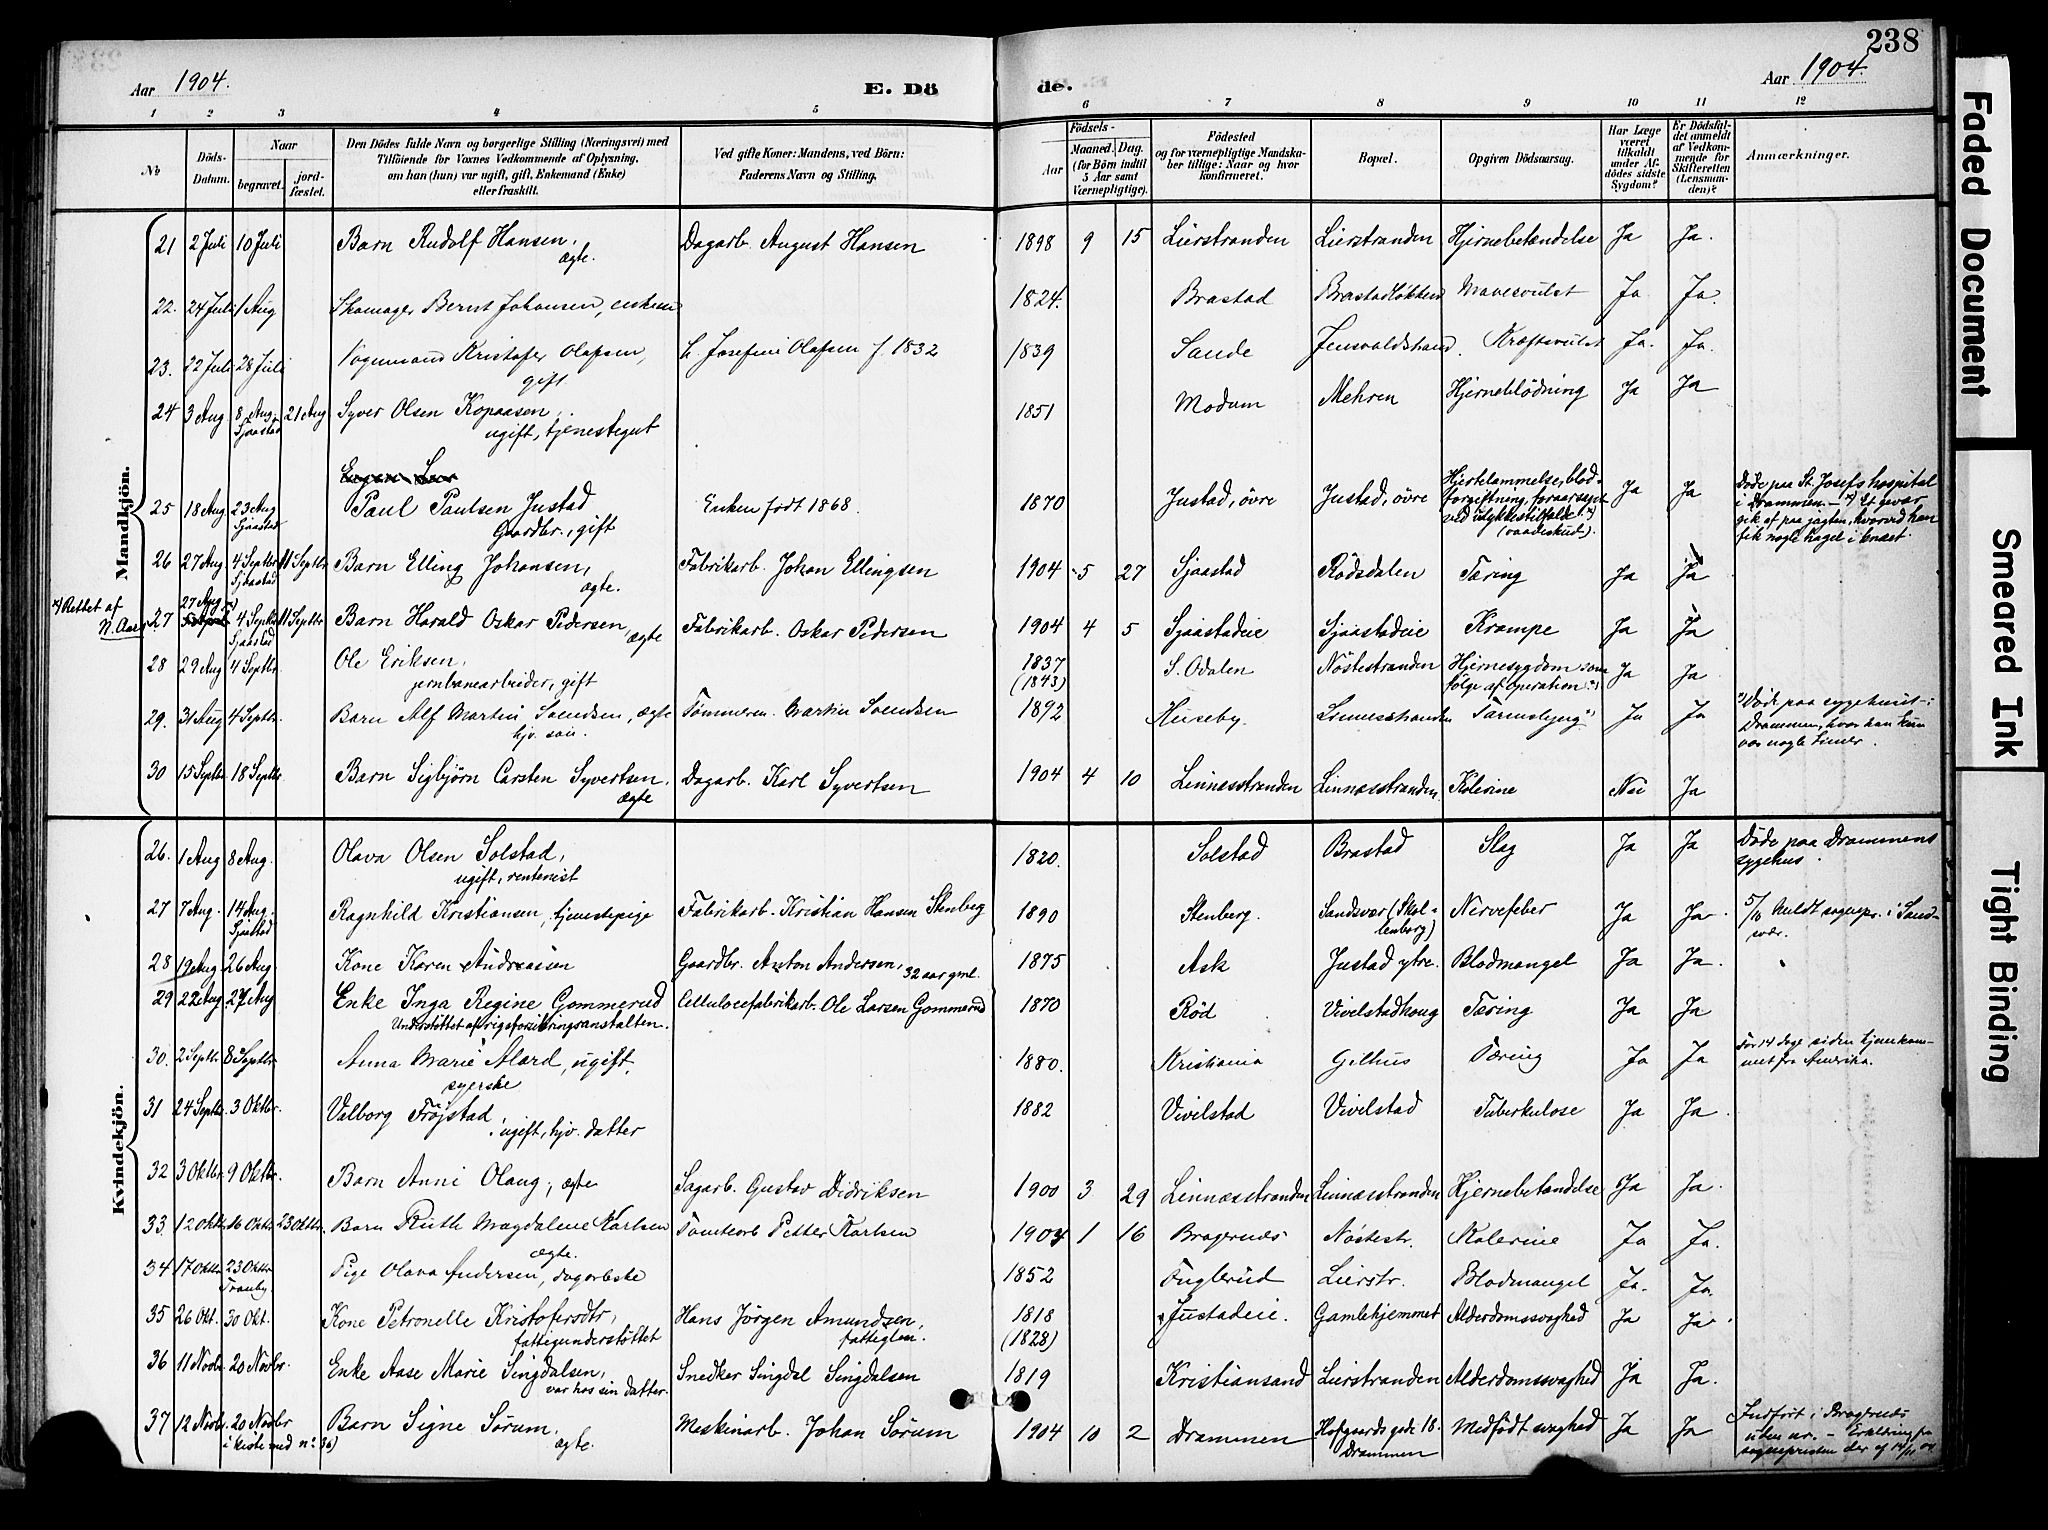 238
Aar 1904. E. Dö de. Aar 1904.
1 2 3 4 5 6 7 8 9 10 11 12
No
Döds-Datum.
Naar
begravet.
jord-fæstet.
Den Dödes fulde Navn og borgerlige Stilling (Næringsvei) med
Tilföiende for Voxnes Vedkommende af Oplysning,
om han (hun) var ugift, gift, Enkemand (Enke)
eller fraskilt.
Ved gifte Koner: Mandens, ved Börn:
Faderens Navn og Stilling.
Födsels-
Aar
Maaned. Dag.
(for Börn indtil
5 Aar samt
Værnepligtige).
Födested
og for værnepligtige Mandska-
ber tillige: Naar og hvor
konfirmeret.
Bopæl.
Opgiven Dödsaarsag.
Har Læge
været
tilkaldt
under Af-
dödes sidste
Sygdom?
Er Dödsfal-
det anmeldt
af Vedkom-
mende for
Skifteretten
(Lensman-
den)?
Anmærkninger.
Mandkjön.
21 2 Juli 10 Juli Barn Rudolf Hansen, ægte. Dagarb. August Hansen 1898 9 15 Lierstranden Lierstranden Hjernebetændelse Ja Ja.
22. 24 Juli 1 Aug Skomager Bernt Johansen, enkem 1824. Brastad Brastadløkken Mavesvulst Ja Ja.
23. 22 Juli 28 Juli Vognmand Kristofer Olafsen, gift H. Josefine Olafsen f. 1832 1839 Sande Kræftsvulst Ja. Ja.
24 3 Aug 8 Aug. Sjaastad 21 Aug Syver Olsen Kopaasen, ugift, tjenestegut 1851 Modum Mehren Hjerneblödning Ja Ja
25 18 Aug 23 Aug Sjaastad Paul Paulsen Justad Gaardbr., gift Enken født 1868. 1870 Justad, övre Justad, övre Hjertelammelse, blod-
forgiftning, foraarsaget
ved ulykkestilfælde x)
(vaadeskud). Ja Ja Döde paa St. Josefs hospital
i Drammen. – x) Et gevær
gik af paa jagten, hvorved han
fik nogle hagel i knæet.
26 27 Aug 4 Septbr Sjaastad 11 Septbr Barn Elling Johansen, ægte. Fabrikarb. Johan Ellingsen 1904 5 27 Sjaastad Rödsdalen Tæring Ja Ja
x) Rettet af
N. Aars
27 27 Aug x) 4 Septbr Sjaastad 11 Septbr Barn Harald Oskar Pedersen, ægte Fabrikarb. Oskar Pedersen 1904 4 5 Sjaastadeie Sjaastadeie Krampe Ja Ja
28 29 Aug 4 Septbr. Ole Eriksen, jernbanearbeider, gift 1837 (1843) S. Odalen Nöstestranden Hjernesygdom som
følge af operation Ja Ja.
29. 31 Aug 4 Septbr. Barn Alf Martin Svendsen, ægte hjv. søn. Tømmerm. Martin Svendsen 1892 Huseby. Linnesstranden Tarmslyng Ja Ja Døde paa sygehuset i
Drammen, hvor han kun
var nogle timer.
30 15 Septbr. 18 Septbr. Barn Sigbjörn Carsten Syvertsen, ægte Dagarb. Karl Syvertsen 1904 4 10 Linnesstranden Linnesstranden. Kolerine Nei Ja
Kvindekjön.
26. 1 Aug 8 Aug. Olava Olsen Solstad, ugift, rentenist 1820. Solstad Brastad Slag Ja Ja Döde paa Drammens
sygehus.
27 7 Aug. 14 Aug. Sjaastad Ragnhild Kristiansen, tjenestepige Fabrikarb. Kristian Hansen Stenberg 1890 Stenberg. Sandsvær (Skol-
lenborg) Nervefeber Ja Ja 5/10 Meldt sognepr. i Sand-
svær.
28 19 Aug 26 Aug. Kone Karen Andreasen Gaardbr. Anton Andersen, 32 aar gml. 1875 Ask Justad ytre. Blodmangel Ja Ja.
29 22 Aug 27 Aug Enke Inga Regine Gommerud Understöttet af rigsforsikringsanstalten. Cellulosefabrikarb. Ole Larsen Gommerud 1870 Röd Vivelstadhaug Tæring Ja Ja
30. 2 Septbr 8 Septbr Anna Marie Alard, ugift, syerske 1880. Kristiania Gilhus Tæring Ja Ja For 14 dage siden hjemkom-
met fra Amerika.
31 24 Septbr. 3 Oktbr. Valborg Fröjstad, ugift, hjv. datter 1882 Vivelstad Vivelstad Tuberkulose Ja Ja.
32 3 Oktbr. 9 Oktbr. Barn Anni Olaug, ægte Sagarb. Gustav Didriksen 1900 3 29 Linnesstranden Linnesstranden Hjernebetændelse Ja Ja.
33. 12 Oktbr 16 Oktbr 23 Oktbr. Barn Ruth Magdalene Karlsen ægte. Tomtearb Petter Karlsen 1904 1 16 Bragernæs Nöstestr. Kolerine Ja Ja.
34 17 Oktbr 23 Oktbr Tranby. Pige Olava Andersen, dagarbske 1852 Fuglerud Lierstr. Blodmangel Ja. Ja.
35 26 Okt. 30 Okt. Kone Petronelle Kristofersdtr, fattigunderstöttet Hans Jörgen Amundsen, fattiglem. 1818 (1828) Justadeie. Gamlehjemmet Alderdomssvaghed Ja Ja.
36 11 Novbr. 20 Novbr. Enke Aase Marie Singdalsen, var hos sin datter. Snedker Singdal Singdalsen 1819 Kristiansand Lierstranden Alderdomssvaghed Ja Ja.
37 12 Novbr. 20 Novbr i kiste med no. 36) Barn Signe Sörum, ægte. Maskinarb. Johan Sörum 1904 10 2 Drammen Hofgaards gade 18. Drammen Medfödt svaghed Ja Ja Indført i Bragernæs
uten nr. – Erklæring fra
sognepresten der af 14/11 04
Faded Document
Smeared Ink
Tight Binding